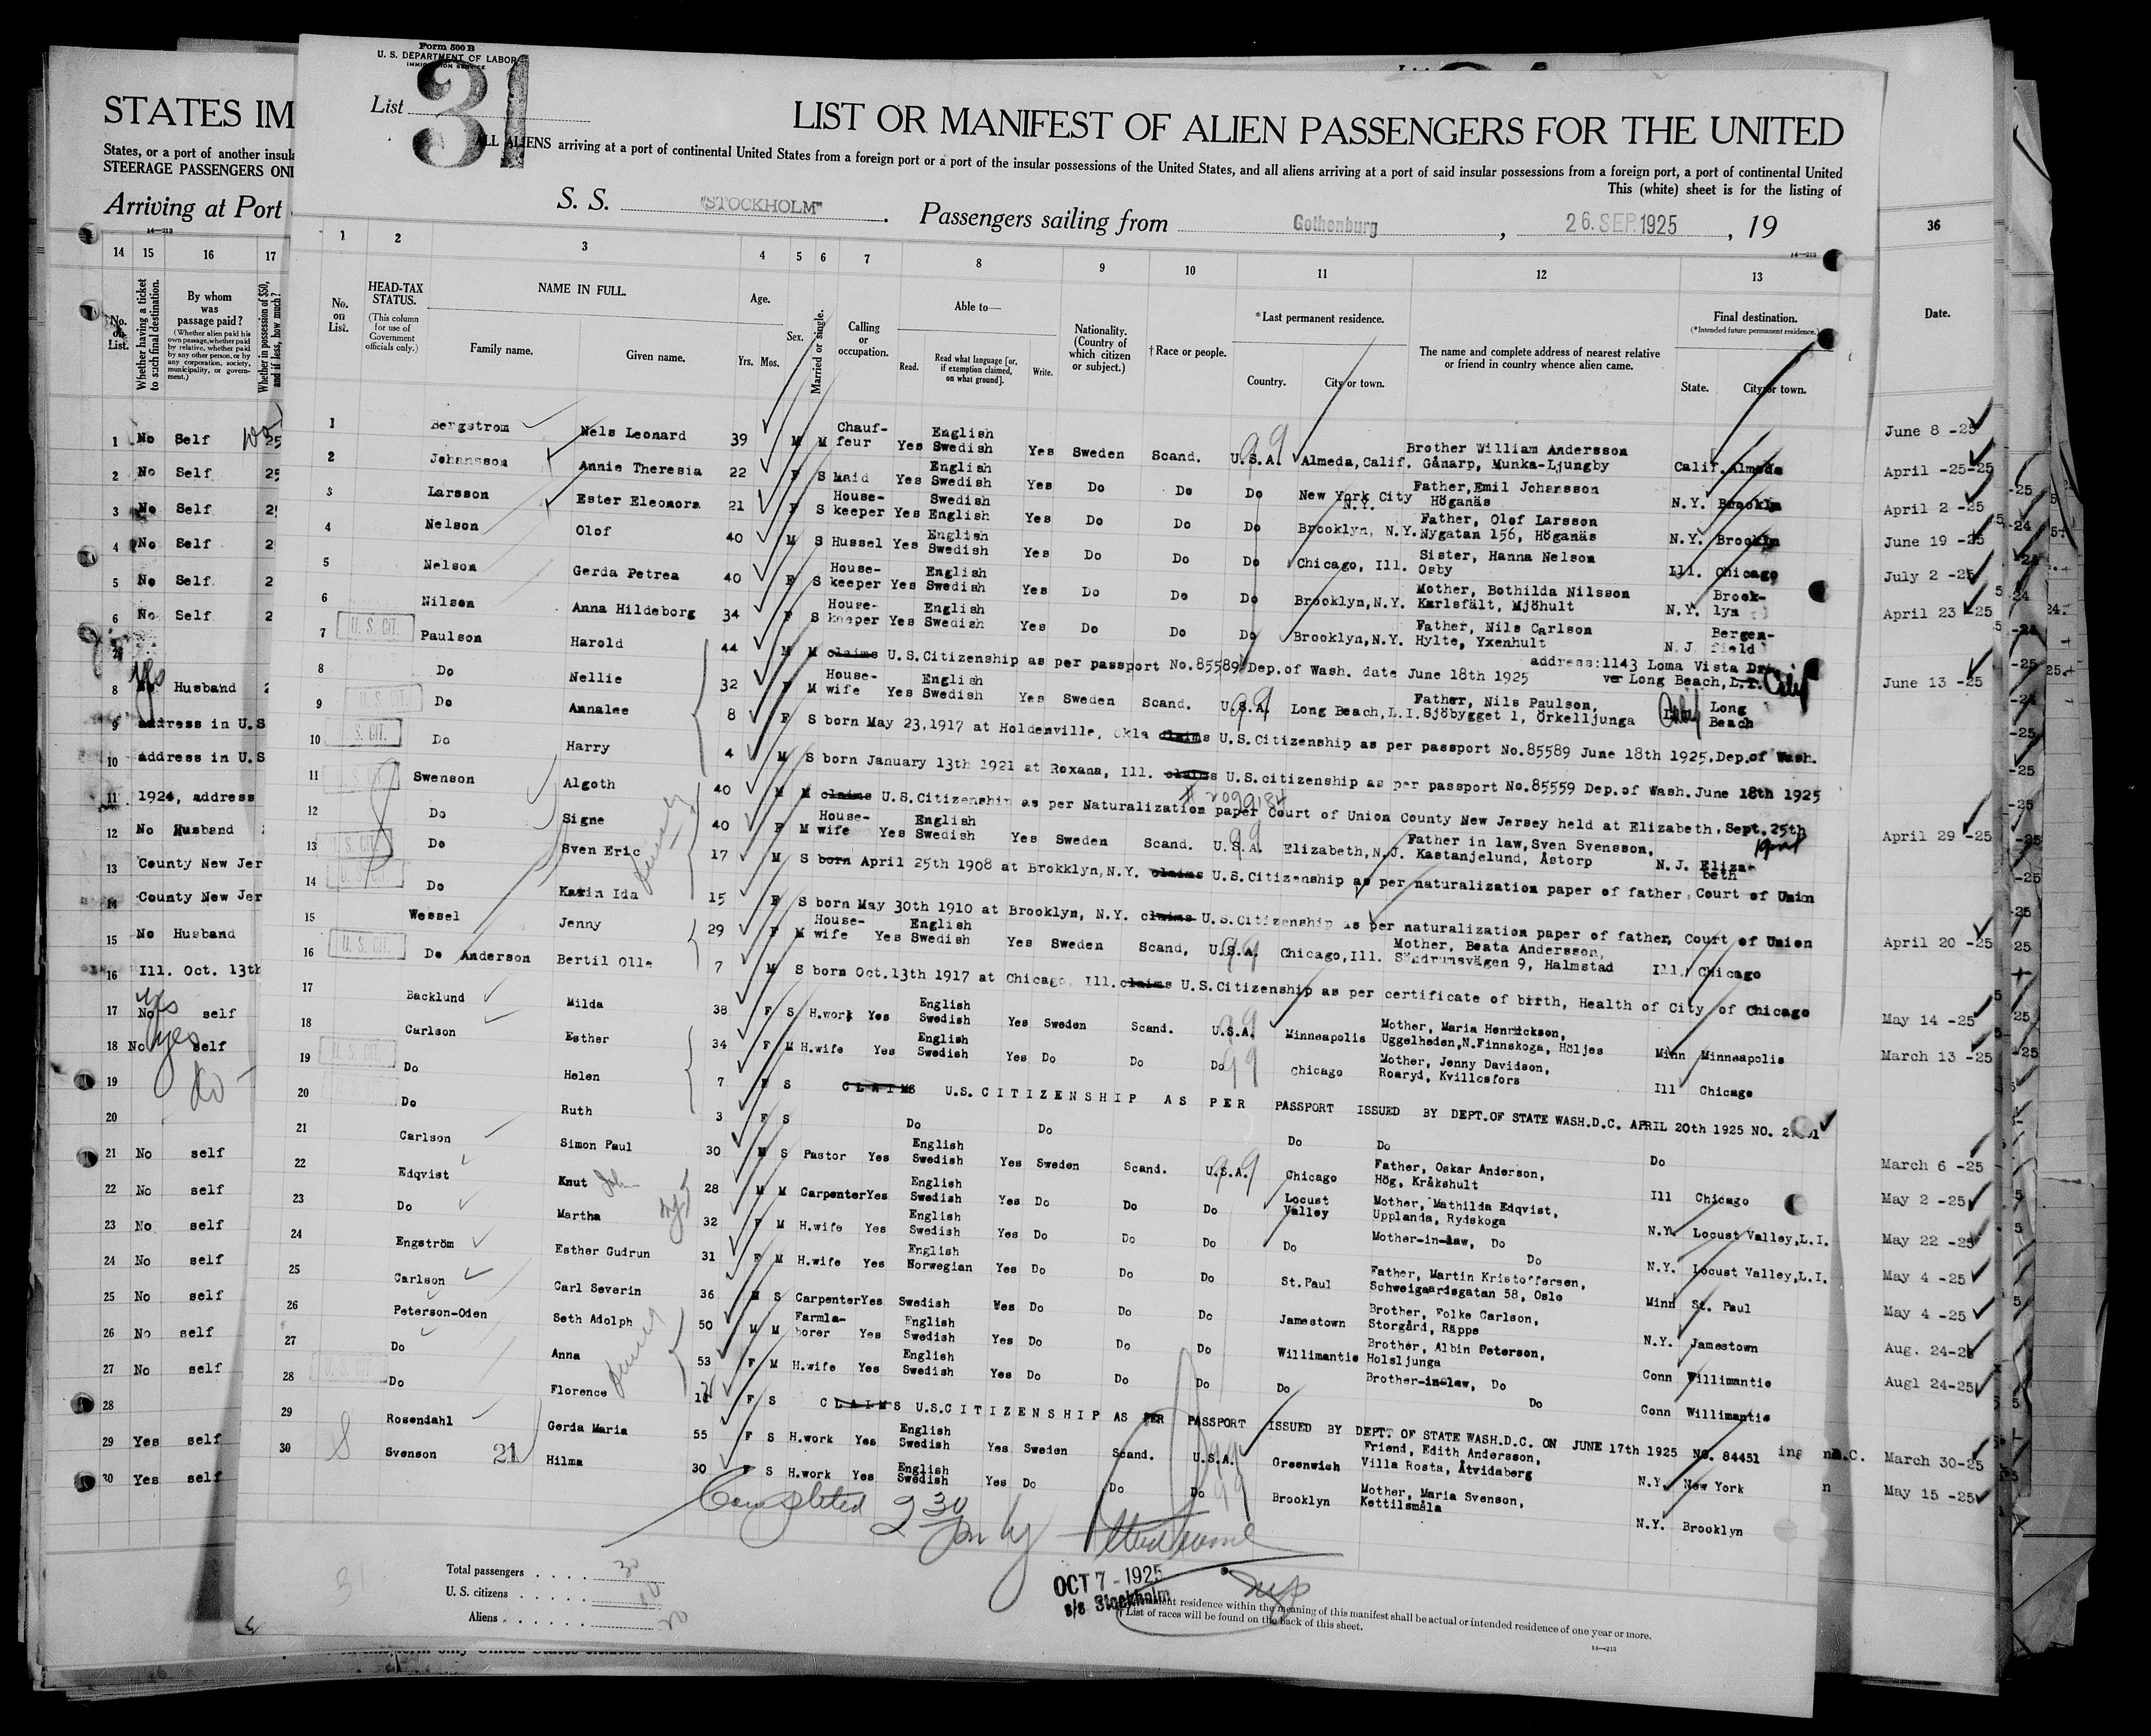 Form 500 B
U. S. DEPARTMENT OF LABOR
IMMIGRATION SERVICE
List 31
STATES IM
LIST OR MANIFEST OF ALIEN PASSENGERS FOR THE UNITED
ALL ALIENS arriving at a port of continental United States from a foreign port or a port of the insular possessions of the United States, and all aliens arriving at a port of said insular possessions from a foreign port, a port of continental United
States, or a port of another insula
STEERAGE PASSENGERS ONL
This (white) sheet is for the listing of
Arriving at Port
S. S. "STOCKHOLM". Passengers sailing from Gothenburg, 26. SEP. 1925, 19
14—213
14 15 16 17
1 2 3 4 5 6 7 8 9 10 11 12 13 36
No. on List.
Whether having a ticket to such final destination.
By whom was passage paid?
(Whether alien paid his own passage, whether paid by relative, whether paid by any other person, or by any corporation, society, municipality, or government.)
Whether in possession of $50, and if less, how much?
No. on List.
HEAD-TAX STATUS.
(This column for use of Government officials only.)
NAME IN FULL.
Family name. Given name.
Age.
Yrs. Mos.
Sex.
Married or single.
Calling or occupation.
Able to—
Read. Read what language [or, if exemption claimed, on what ground]. Write.
Nationality. (Country of which citizen or subject.)
†Race or people.
*Last permanent residence.
Country. City or town.
The name and complete address of nearest relative or friend in country whence alien came.
Final destination.
(*Intended future permanent residence.)
State. City or town.
Date.
1 Bergstrom Nels Leonard 39 M M Chauffeur Yes English Swedish Yes Sweden Scand. U.S.A. Almeda, Calif. Brother William Andersson Gånarp, Munka-Ljungby Calif. Almeda
2 Johansson Annie Theresia 22 F S Maid Yes English Swedish Yes Do Do Do New York City N.Y. Father, Emil Johansson Höganäs N.Y. Brookln
3 Larsson Ester Eleonora 21 F S House-keeper Yes Swedish English Yes Do Do Do Brooklyn, N.Y. Father, Olof Larsson Nygatan 156, Höganäs N.Y. Brookln
4 Nelson Olof 40 M S Hussel Yes English Swedish Yes Do Do Do Chicago, Ill. Sister, Hanna Nelson Osby Ill. Chicago
5 Nelson Gerda Petrea 40 F S House-keeper Yes English Swedish Yes Do Do Do Brooklyn, N.Y. Mother, Bothilda Nilsson Karlsfält, Mjöhult N.Y. Brook-lyn
6 Nilson Anna Hildeborg 34 F S House-keeper Yes English Swedish Yes Do Do Do Brooklyn, N.Y. Father, Nils Carlson Hylte, Yxenhult N.J. Bergen-field
7 U. S. CIT. Paulson Harold 44 M M claims U.S.Citizenship as per passport No.85589 Dep.of Wash. date June 18th 1925 address:1143 Loma Vista Dri ver Long Beach, L.I. Calif
8 Do Nellie 32 F M House-wife Yes English Swedish Yes Sweden Scand. U.S.A. Long Beach, L.I. Father, Nils Paulson, Sjöbygget 1, Örkelljunga Calif Long Beach
9 U. S. CIT. Do Annalee 8 F S born May 23,1917 at Holdenville, Okla claims U.S.Citizenship as per passport No.85589 June 18th 1925.Dep.of Wash.
10 S. CIT. Do Harry 4 M S born January 13th 1921 at Roxana, Ill. claims U.S.citizenship as per passport No.85559 Dep.of Wash.June 18th 1925
11 U. S. CIT. Swenson Algoth 40 M M claims U.S.Citizenship as per Naturalization paper Court of Union County New Jersey held at Elizabeth, Sept.25th
# 2099184
12 Do Signe 40 F M House-wife Yes English Swedish Yes Sweden Scand. U.S.A. Elizabeth, N.J. Father in law, Sven Svensson, Kastanjelund, Åstorp N.J. Eliza-beth
13 U. S. CIT. Do Sven Eric 17 M S born April 25th 1908 at Brokklyn, N.Y. claims U.S.Citizenship as per naturalization paper of father, Court of Union
14 U. S. CIT. Do Karin Ida 15 F S born May 30th 1910 at Brooklyn, N.Y. claims U.S.Citizenship as per naturalization paper of father, Court of Union
15 Wessel Jenny 29 F M House-wife Yes English Swedish Yes Sweden Scand, U.S.A. Chicago, Ill. Mother, Beata Andersson, Söndrumsvägen 9, Halmstad Ill. Chicago
16 U. S. CIT. Do Anderson Bertil Olle 7 M S born Oct.13th 1917 at Chicago, Ill. claims U.S.Citizenship as per certificate of birth, Health of City of Chicago
17 Backlund Milda 38 F S H.work Yes English Swedish Yes Sweden Scand. U.S.A. Minneapolis Mother, Maria Henrickson, Uggelheden, N.Finnskoga, Höljes Minn Minneapolis
18 Carlson Esther 34 F M H.wife Yes English Swedish Yes Do Do Do Chicago Mother, Jenny Davidson, Roaryd, Kvillesfors Ill Chicago
19 U. S. CIT. Do Helen 7 F S CLAIMS U.S. CITIZENSHIP AS PER PASSPORT ISSUED BY DEPT.OF STATE WASH.D.C. APRIL 20th 1925 NO.
20 Do Ruth 3 F S Do Do Do Do Do
21 Carlson Simon Paul 30 M S Pastor Yes English Swedish Yes Sweden Scand. U.S.A. Chicago Father, Oskar Anderson, Hög, Kråkshult Ill Chicago
22 Edqvist Knut John 28 M M Carpenter Yes English Swedish Yes Do Do Do Locust Valley Mother, Mathilda Edqvist, Upplanda, Rydskoga N.Y. Locust Valley, L.I.
23 Do Martha 32 F M H.wife Yes English Swedish Yes Do Do Do Do Mother-in-law, Do Do N.Y. Locust Valley, L.I.
24 Engström Esther Gudrun 31 F M H.wife Yes English Norwegian Yes Do Do Do St.Paul Father, Martin Kristoffersen, Schweigaardsgatan 58, Oslo Minn St. Paul
25 Carlson Carl Severin 36 M S Carpenter Yes Swedish Yes Do Do Do Jamestown Brother, Folke Carlson, Storgård, Räppe N.Y. Jamestown
26 Peterson-Oden Seth Adolph 50 M M Farmla-borer Yes English Swedish Yes Do Do Do Willimantic Brother, Albin Peterson, Holsljunga Conn Willimantic
27 Do Anna 53 F M H.wife Yes English Swedish Yes Do Do Do Do Brother-in-law, Do Do Conn Willimantic
28 U. S. CIT. Do Florence F S CLAIMS U.S.CITIZENSHIP AS PER PASSPORT ISSUED BY DEPT. OF STATE WASH.D.C. ON JUNE 17th 1925 NO. 84451
29 Rosendahl Gerda Maria 55 F S H.work Yes English Swedish Yes Sweden Scand. U.S.A. Greenwich Friend, Edith Andersson, Villa Rosta, Åtvidaberg N.Y. New York
30 Svenson 21 Hilma 30 F S H.work Yes English Swedish Yes Do Do Do Brooklyn Mother, Maria Svenson, Kettilsmåla N.Y. Brooklyn
1 No Self 25
2 No Self 25
3 No Self
4 No Self
5 No Self
6 No Self
8 Husband
9 address in U.S
10 address in U.S
11 1924, address
12 No Husband
13 County New Jer
14 County New Jer
15 No Husband
16 Ill. Oct. 13th
17 No yes self
18 No yes self
19
20
21 No self
22 No self
23 No self
24 No self
25 No self
26 No self
27 No self
28
29 Yes self
30 Yes self
June 8 -25
April -25-25
April 2 -25
June 19 -25
July 2 -25
April 23 -25
June 13 -25
April 29 -25
April 20 -25
May 14 -25
March 13 -25
March 6 -25
May 2 -25
May 22 -25
May 4 -25
May 4 -25
Aug. 24-25
Augl 24-25
March 30-25
May 15 -25
Completed 2 30 pm by
OCT 7 - 1925
s/s Stockholm
Total passengers 30
U. S. citizens 10
Aliens 20
residence within the meaning of this manifest shall be actual or intended residence of one year or more.
† List of races will be found on the back of this sheet.
14—213